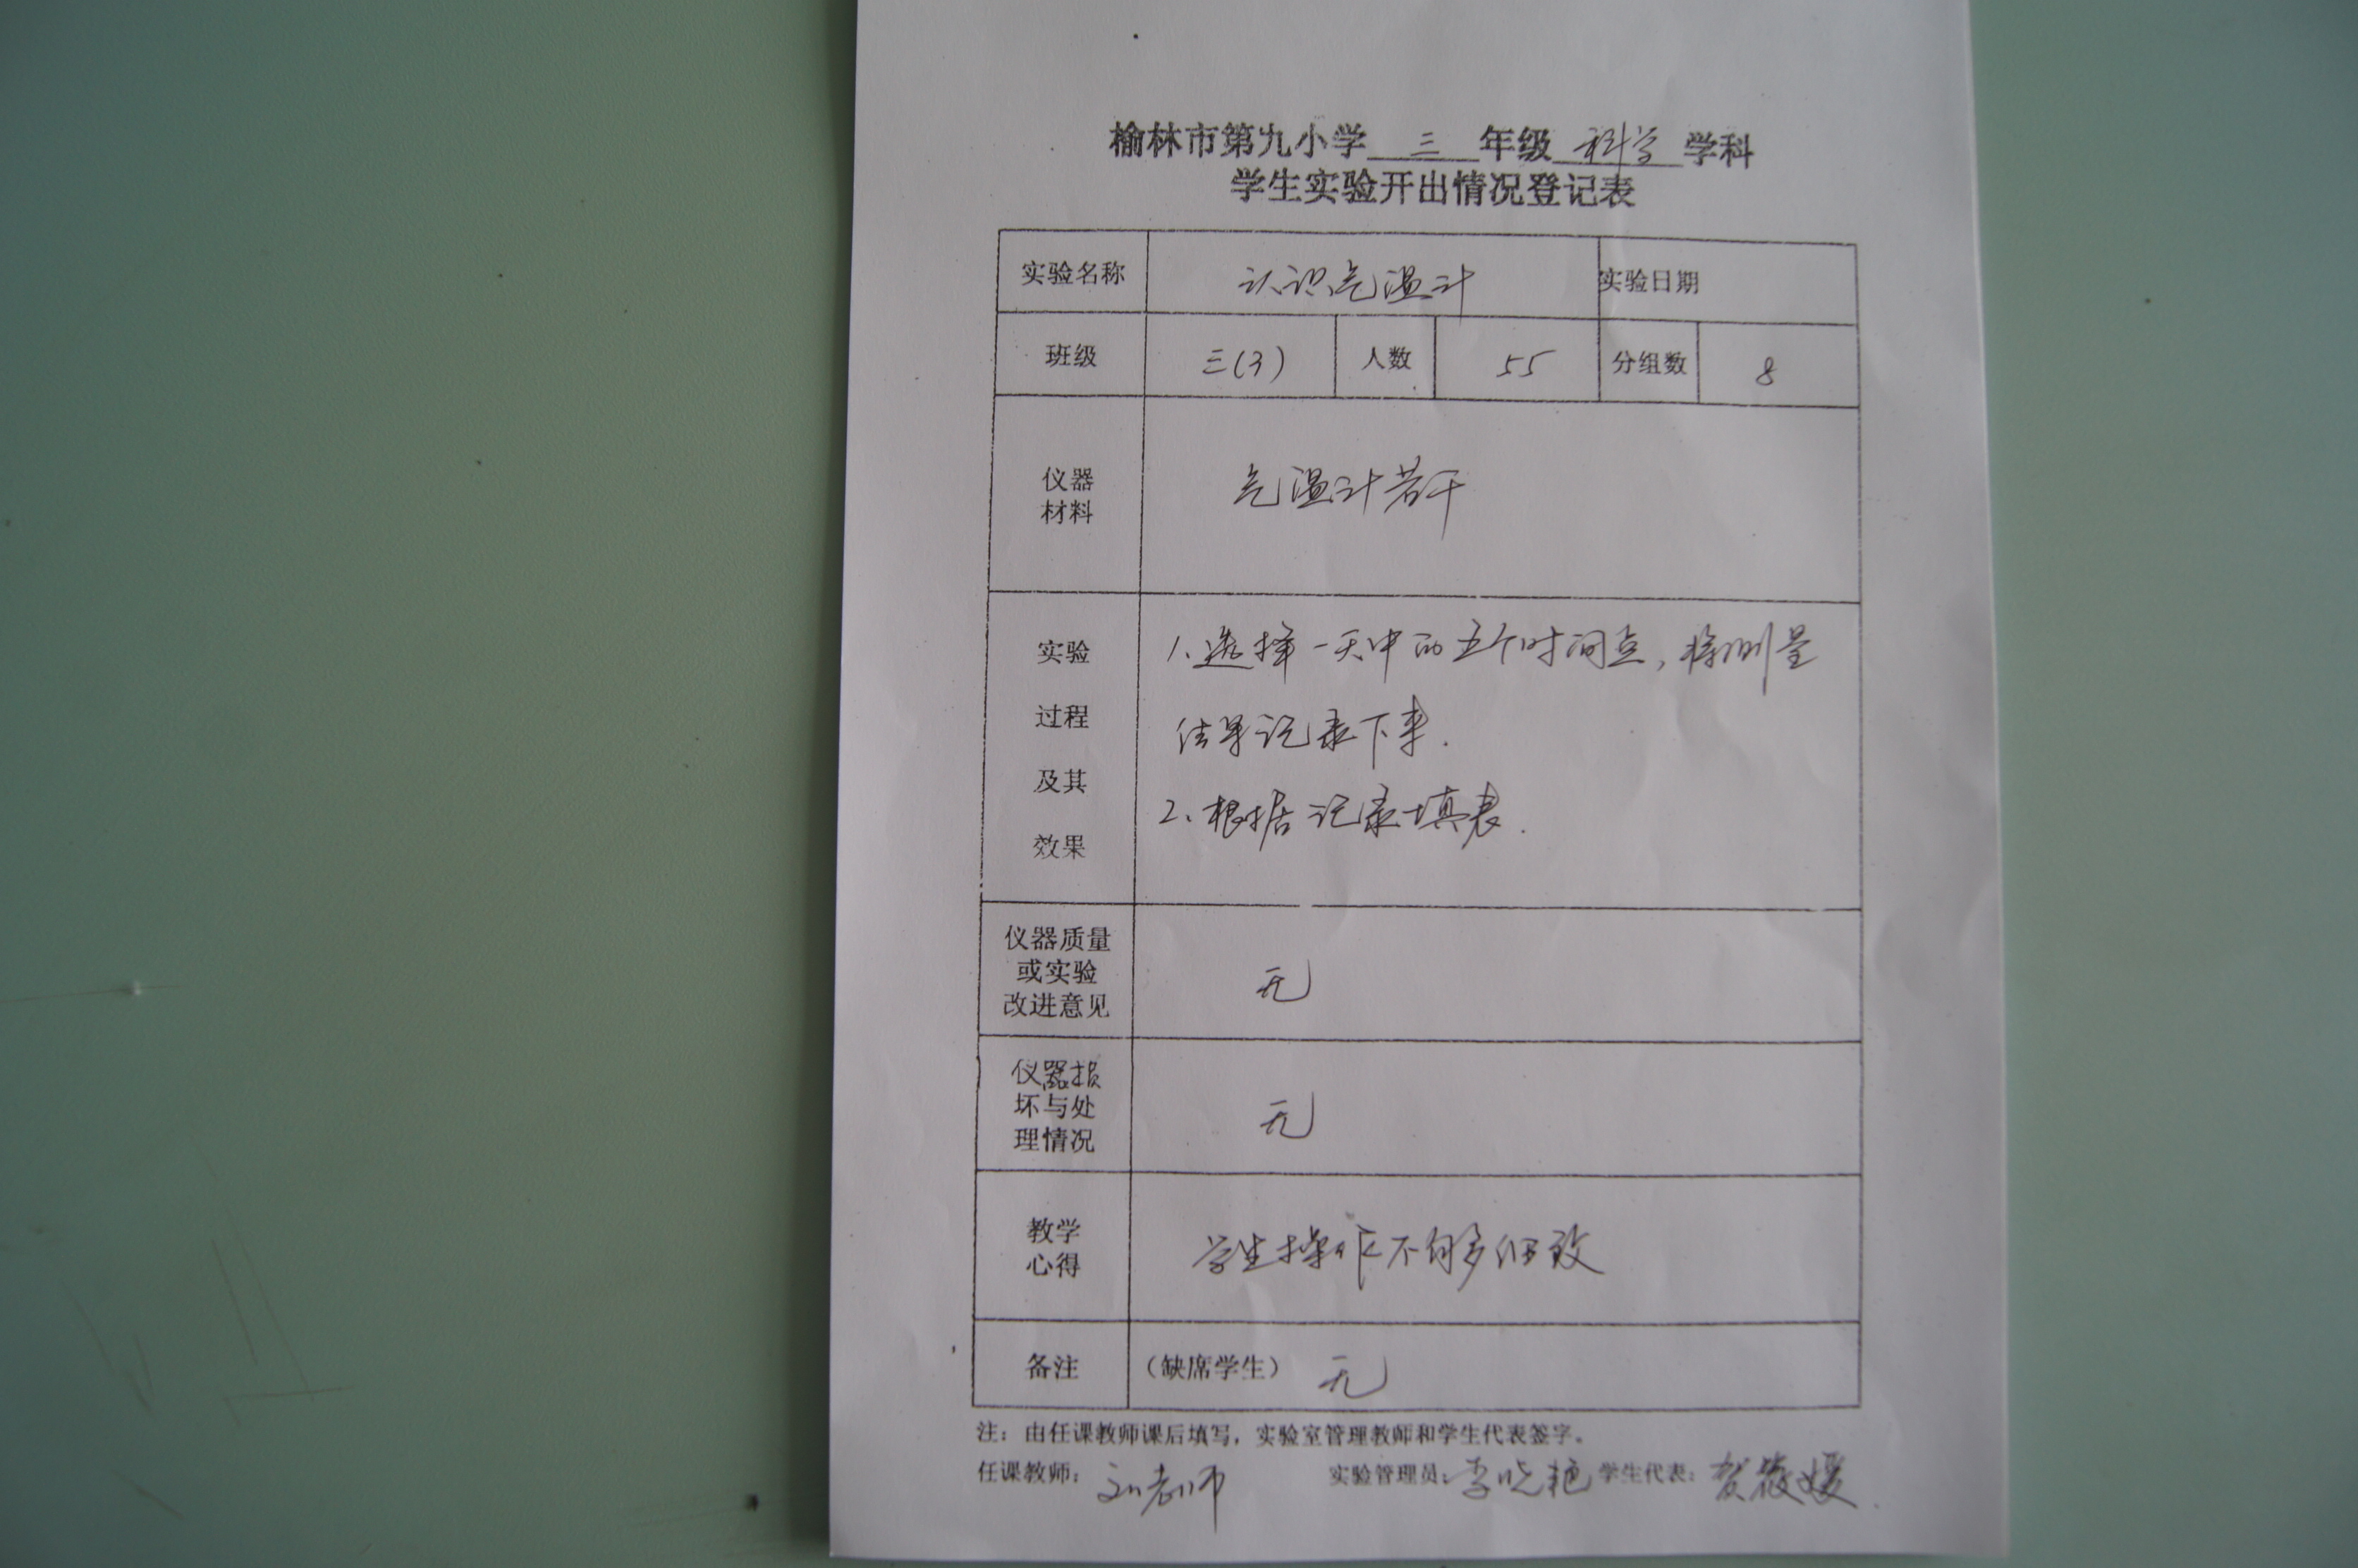 榆林市第九小学 三 年级 科学 学科
学生实验开出情况登记表
实验名称 认识气温计 实验日期
班级 三(3) 人数 55 分组数 8
仪器
材料
气温计若干
实验
过程
及其
效果
1、选择一天中的五个时间点,将测量
结果记录下来.
2、根据记录填表.
仪器质量
或实验
改进意见
无
仪器损
坏与处
理情况
无
教学
心得
学生操作不够细致
备注 (缺席学生) 无
注：由任课教师课后填写，实验室管理教师和学生代表签字。
任课教师：刘老师 实验管理员：李晓艳 学生代表：贺薇媛